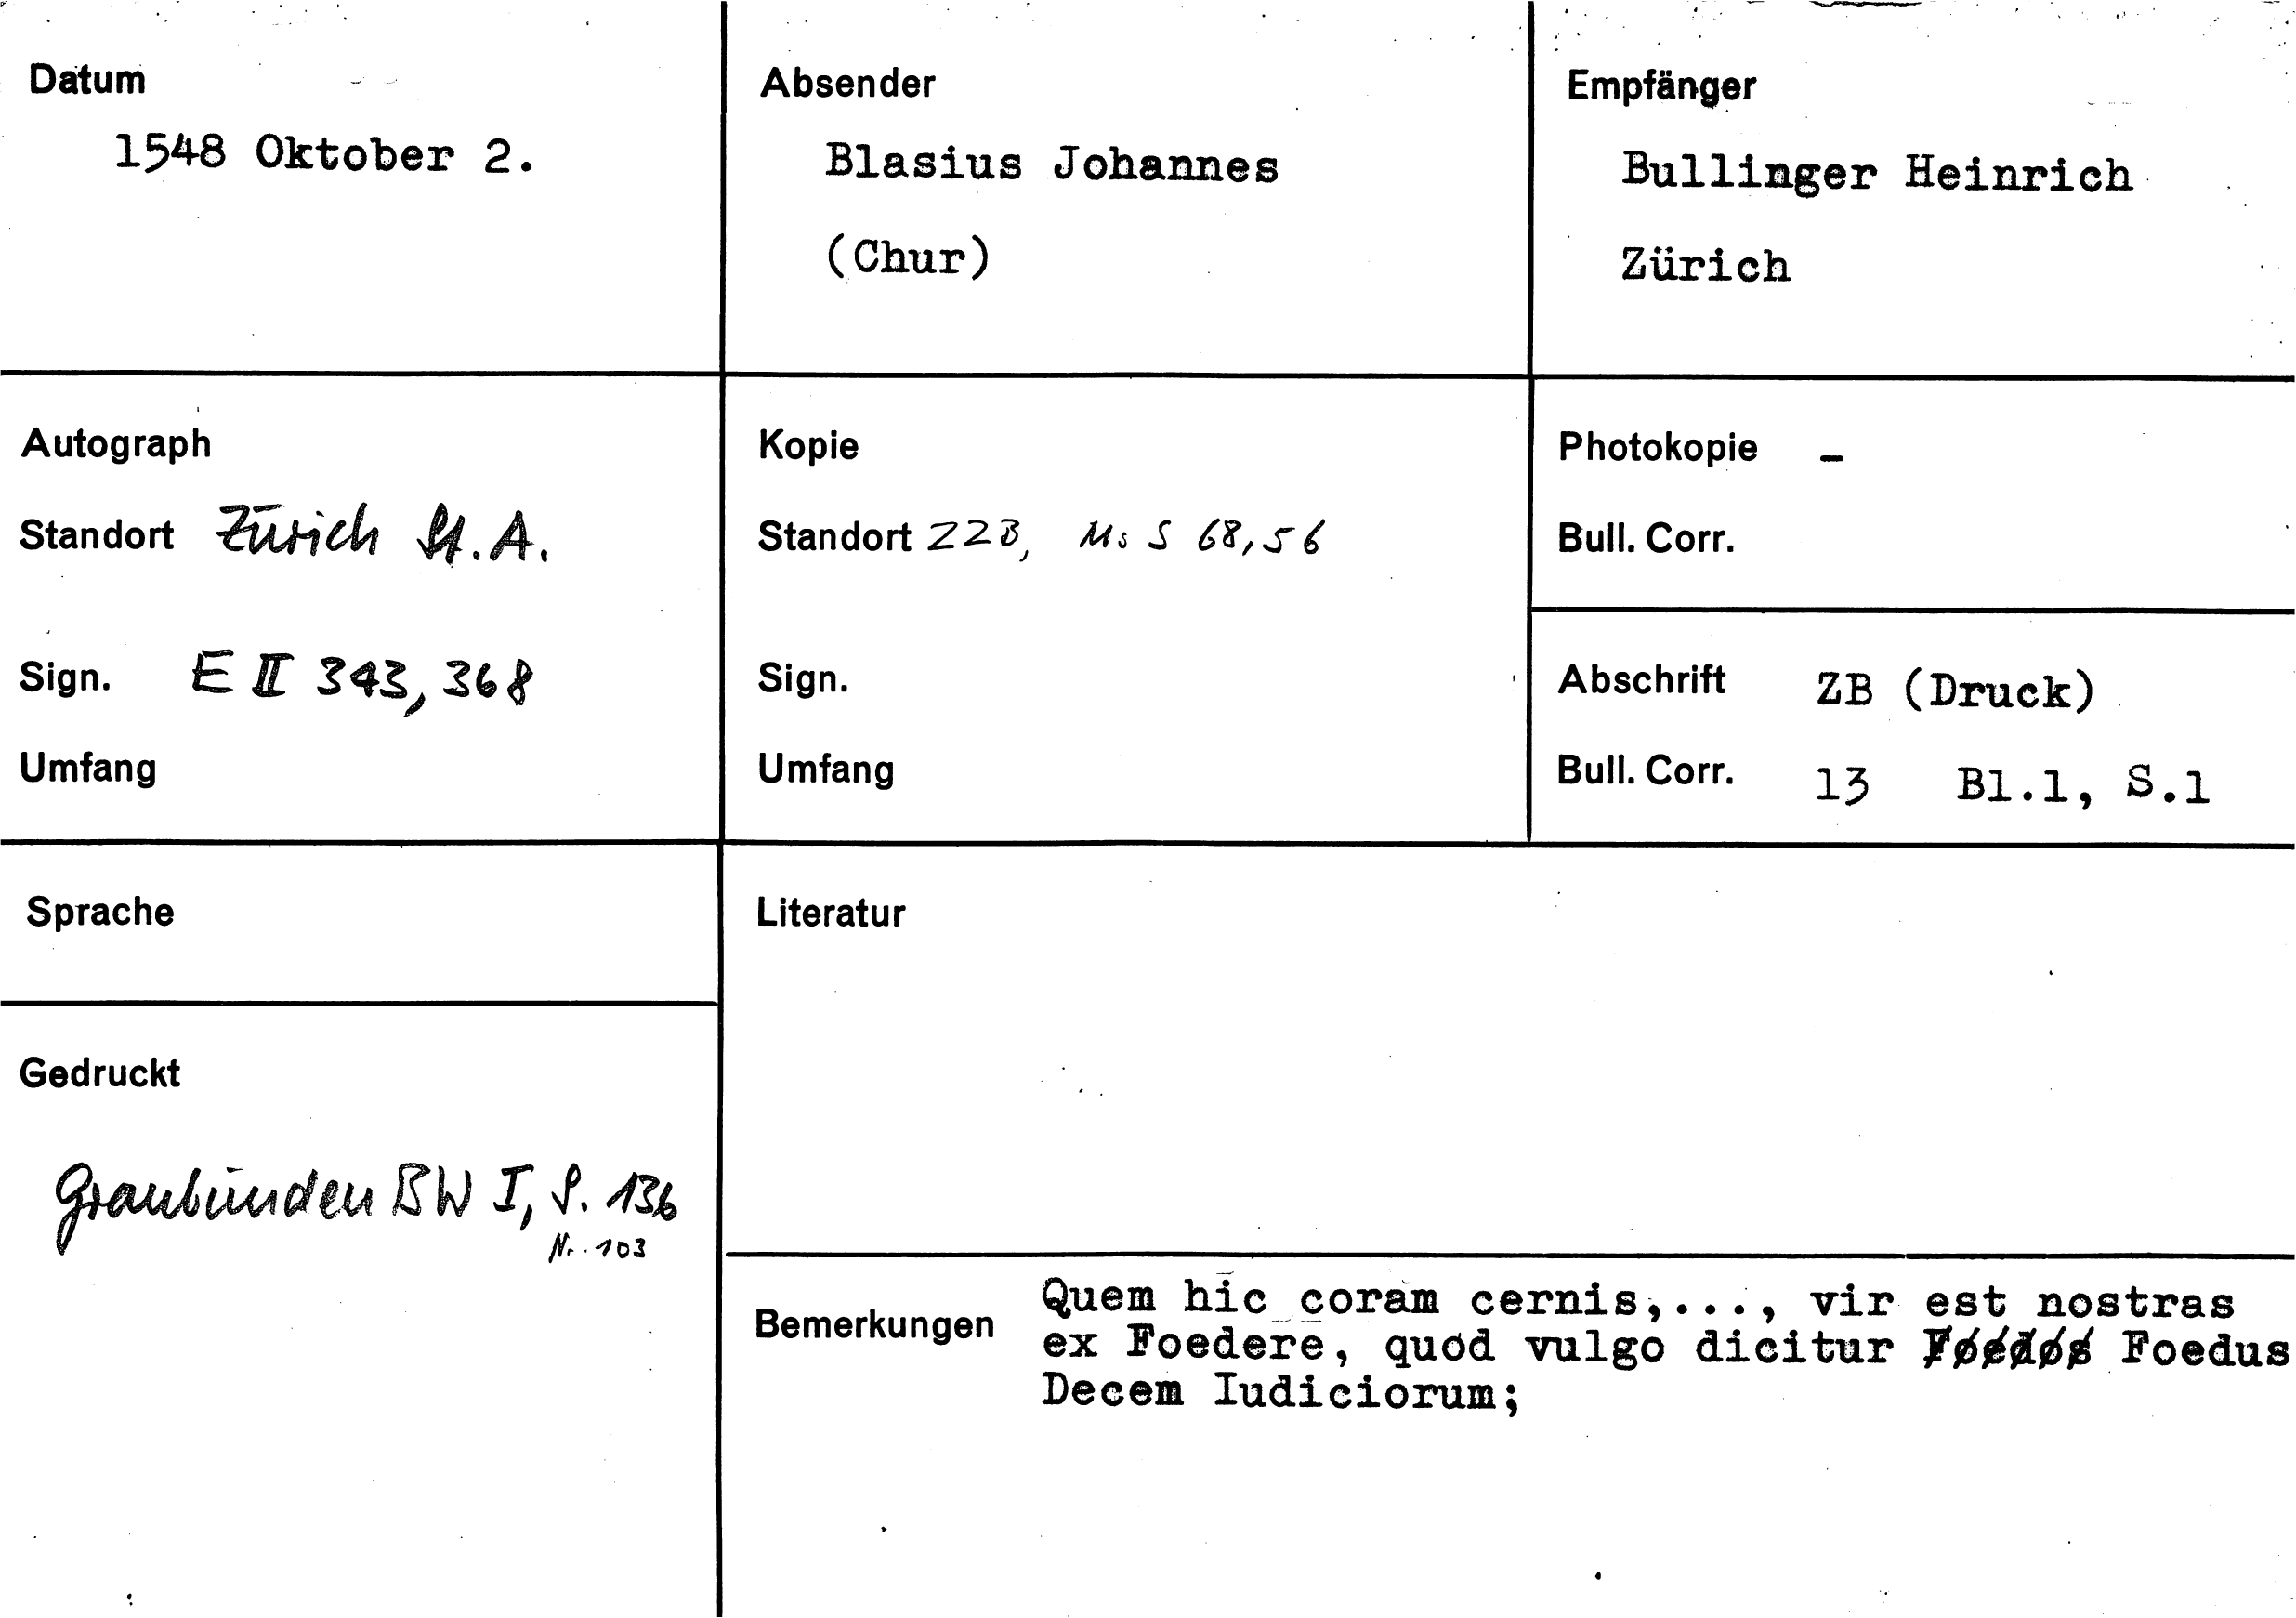 Datum
1548 Oktober 2.
Absender
Blasius Johannes
(Chur)
Empfänger
Bullinger Heinrich
Zürich
Autograph
Standort Zürich St. A.
Sign. E II 343, 368
Umfang
Kopie
Standort ZZB, Ms S 68,56
Sign.
Umfang
Photokopie –
Bull. Corr.
Abschrift ZB (Druck)
Bull. Corr. 13 Bl.1, S.1
Sprache
Gedruckt
Graubünden BW I, S. 136
Nr. 103
Literatur
Bemerkungen
Quem hic coram cernis,..., vir est nostras
ex Foedere, quod vulgo dicitur Foedos Foedus
Decem Iudiciorum;